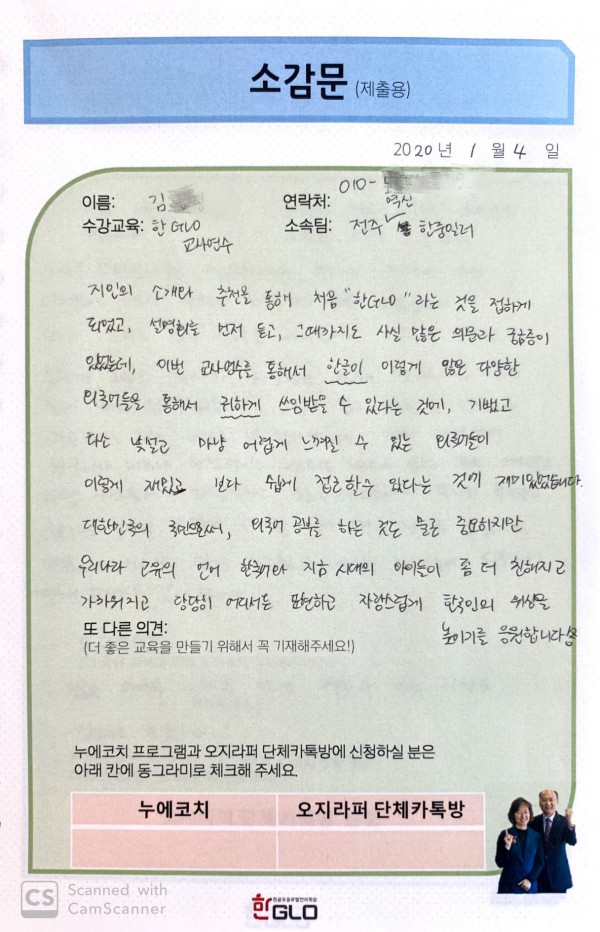 소감문 (제출용)
2020년 1월 4일
이름: 김
연락처: 010-
수강교육: 한GLO
교사연수
소속팀: 전주 혁신 한중일러
지인의 소개와 추천을 통해 처음 "한GLO"라는 것을 접하게
되었고, 설명회를 먼저 듣고, 그때까지도 사실 많은 의문과 궁금증이
있었는데, 이번 교사연수를 통해서 한글이 이렇게 많은 다양한
외국어들을 통해서 귀하게 쓰임받을 수 있다는 것에, 기뻤고
다소 낯설고 마냥 어렵게 느껴질 수 있는 외국어들이
이렇게 재밌고 보다 쉽게 접근할수 있다는 것이 재미있었습니다.
대한민국의 국민으로써, 외국어 공부를 하는 것도 물론 중요하지만
우리나라 고유의 언어 한국어와 지금 시대의 아이들이 좀 더 친해지고
가까워지고 당당히 어디서든 표현하고 자랑스럽게 한국인의 위상을
높이기를 응원합니다
또 다른 의견:
(더 좋은 교육을 만들기 위해서 꼭 기재해주세요!)
누에코치 프로그램과 오지라퍼 단체카톡방에 신청하실 분은
아래 칸에 동그라미로 체크해 주세요.
누에코치 오지라퍼 단체카톡방
CS Scanned with
CamScanner
한GLO